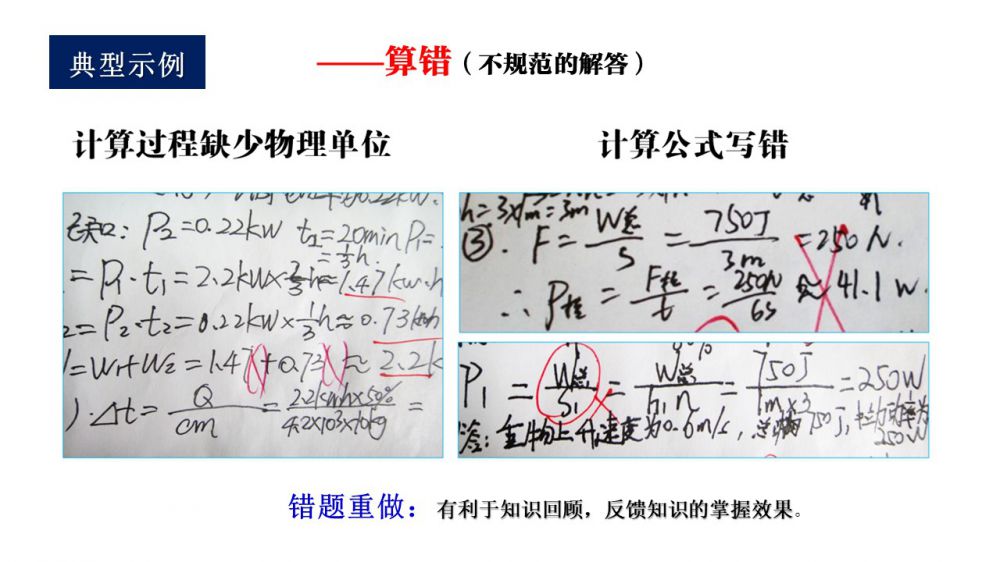 典型示例
——算错（不规范的解答）
计算过程缺少物理单位
计算公式写错
P₂=0.22kw t₂=20min P₁=
=⅓h.
=P₁·t₁=2.2kW×⅔h≈1.47kw·h
₂=P₂·t₂=0.22kW×⅓h≈0.73kwh
=W₁+W₂=1.47+0.73≈2.2k
)·Δt=Q/cm=2.2kwh×50%/4.2×103×10kg=
h=3×1m=3m
③. F=W总/S=750J/3m=250N.
∴P拉=F拉/t=250N/6s≈41.1w.
P₁=W总/S₁=W总/h₁n=750J/1m×3=250W
上升速度为0.6m/s，750J，功率为
250W
错题重做：有利于知识回顾，反馈知识的掌握效果。